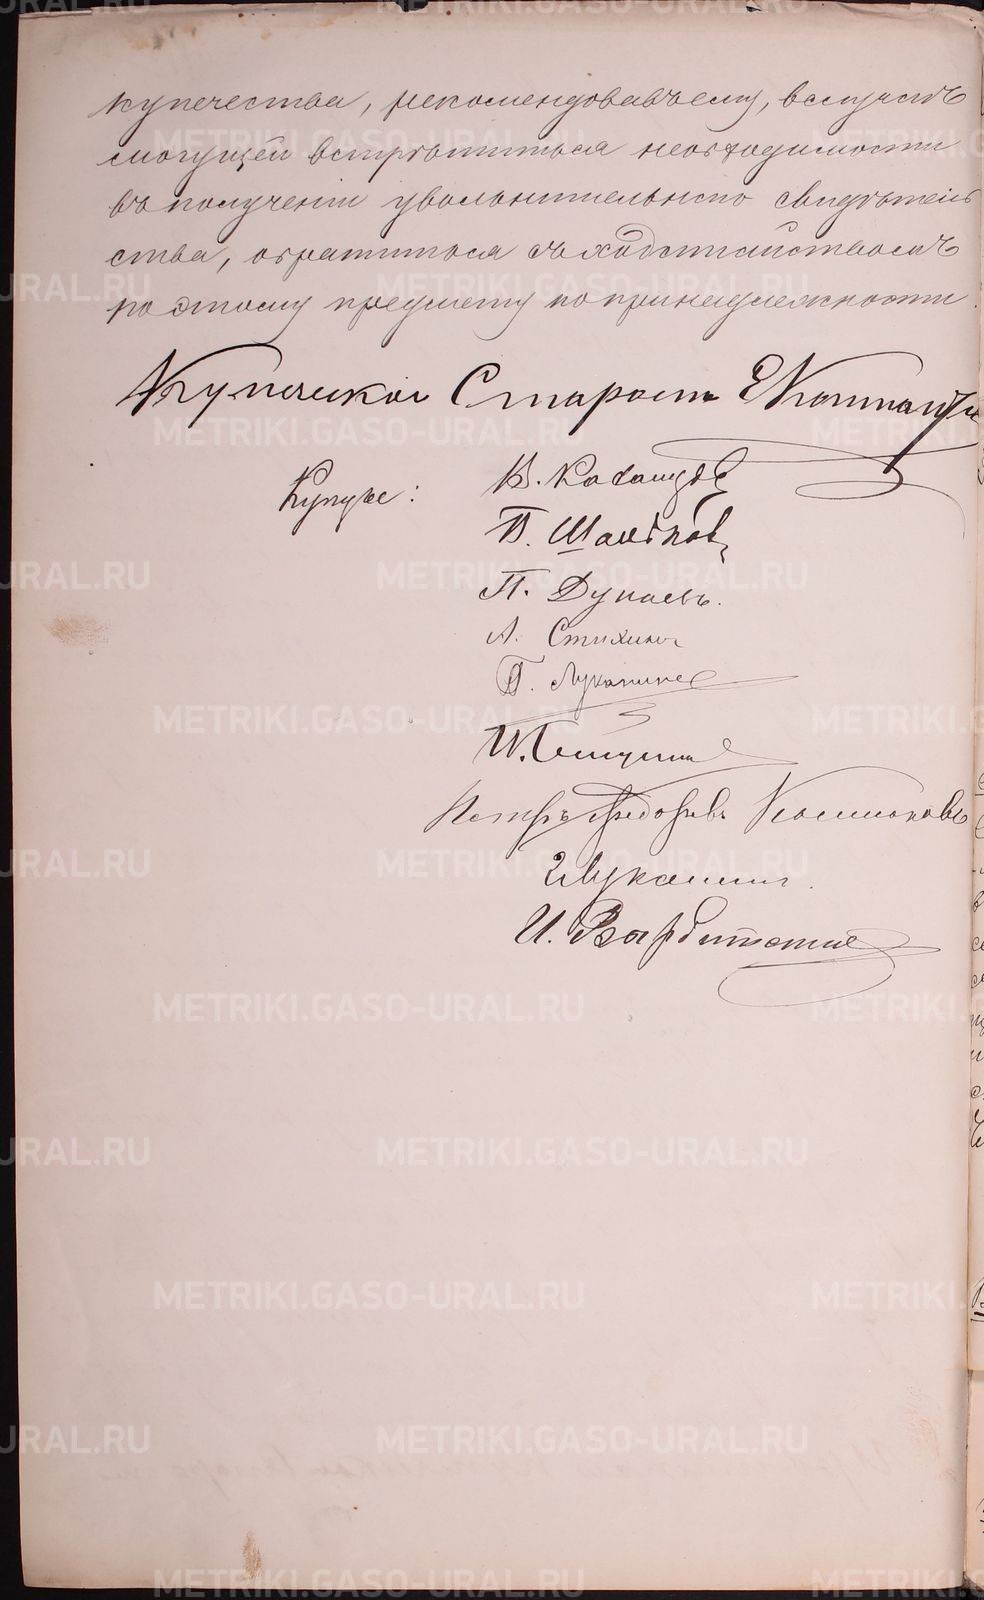 купечества, рекомендовавъ ему, въ случаѣ
могущей встрѣтиться необходимости
въ полученіи увольнительнаго свидѣтель
ства, обратиться съ ходатайствомъ
по этому предмету по принадлежности.
Купеческій Староста
Купцы:
В.
П.
П. Дунаевъ.
А. Стихинъ
П. Луканинъ
И.
Петръ Федоровъ
Луканинъ.
И.
METRIKI.GASO-URAL.RU